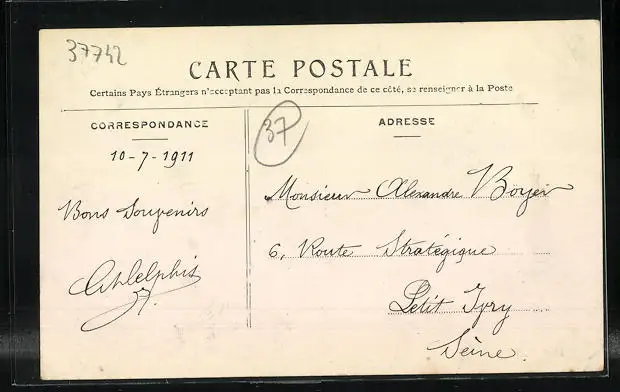 37742
CARTE POSTALE
Certains Pays Étrangers n'acceptant pas la Correspondance de ce côté, se renseigner à la Poste
CORRESPONDANCE
10-7-1911
Bons Souvenirs
37
ADRESSE
Monsieur Alexandre Boyer
6, Route Stratégique
Petit Ivry
Seine.